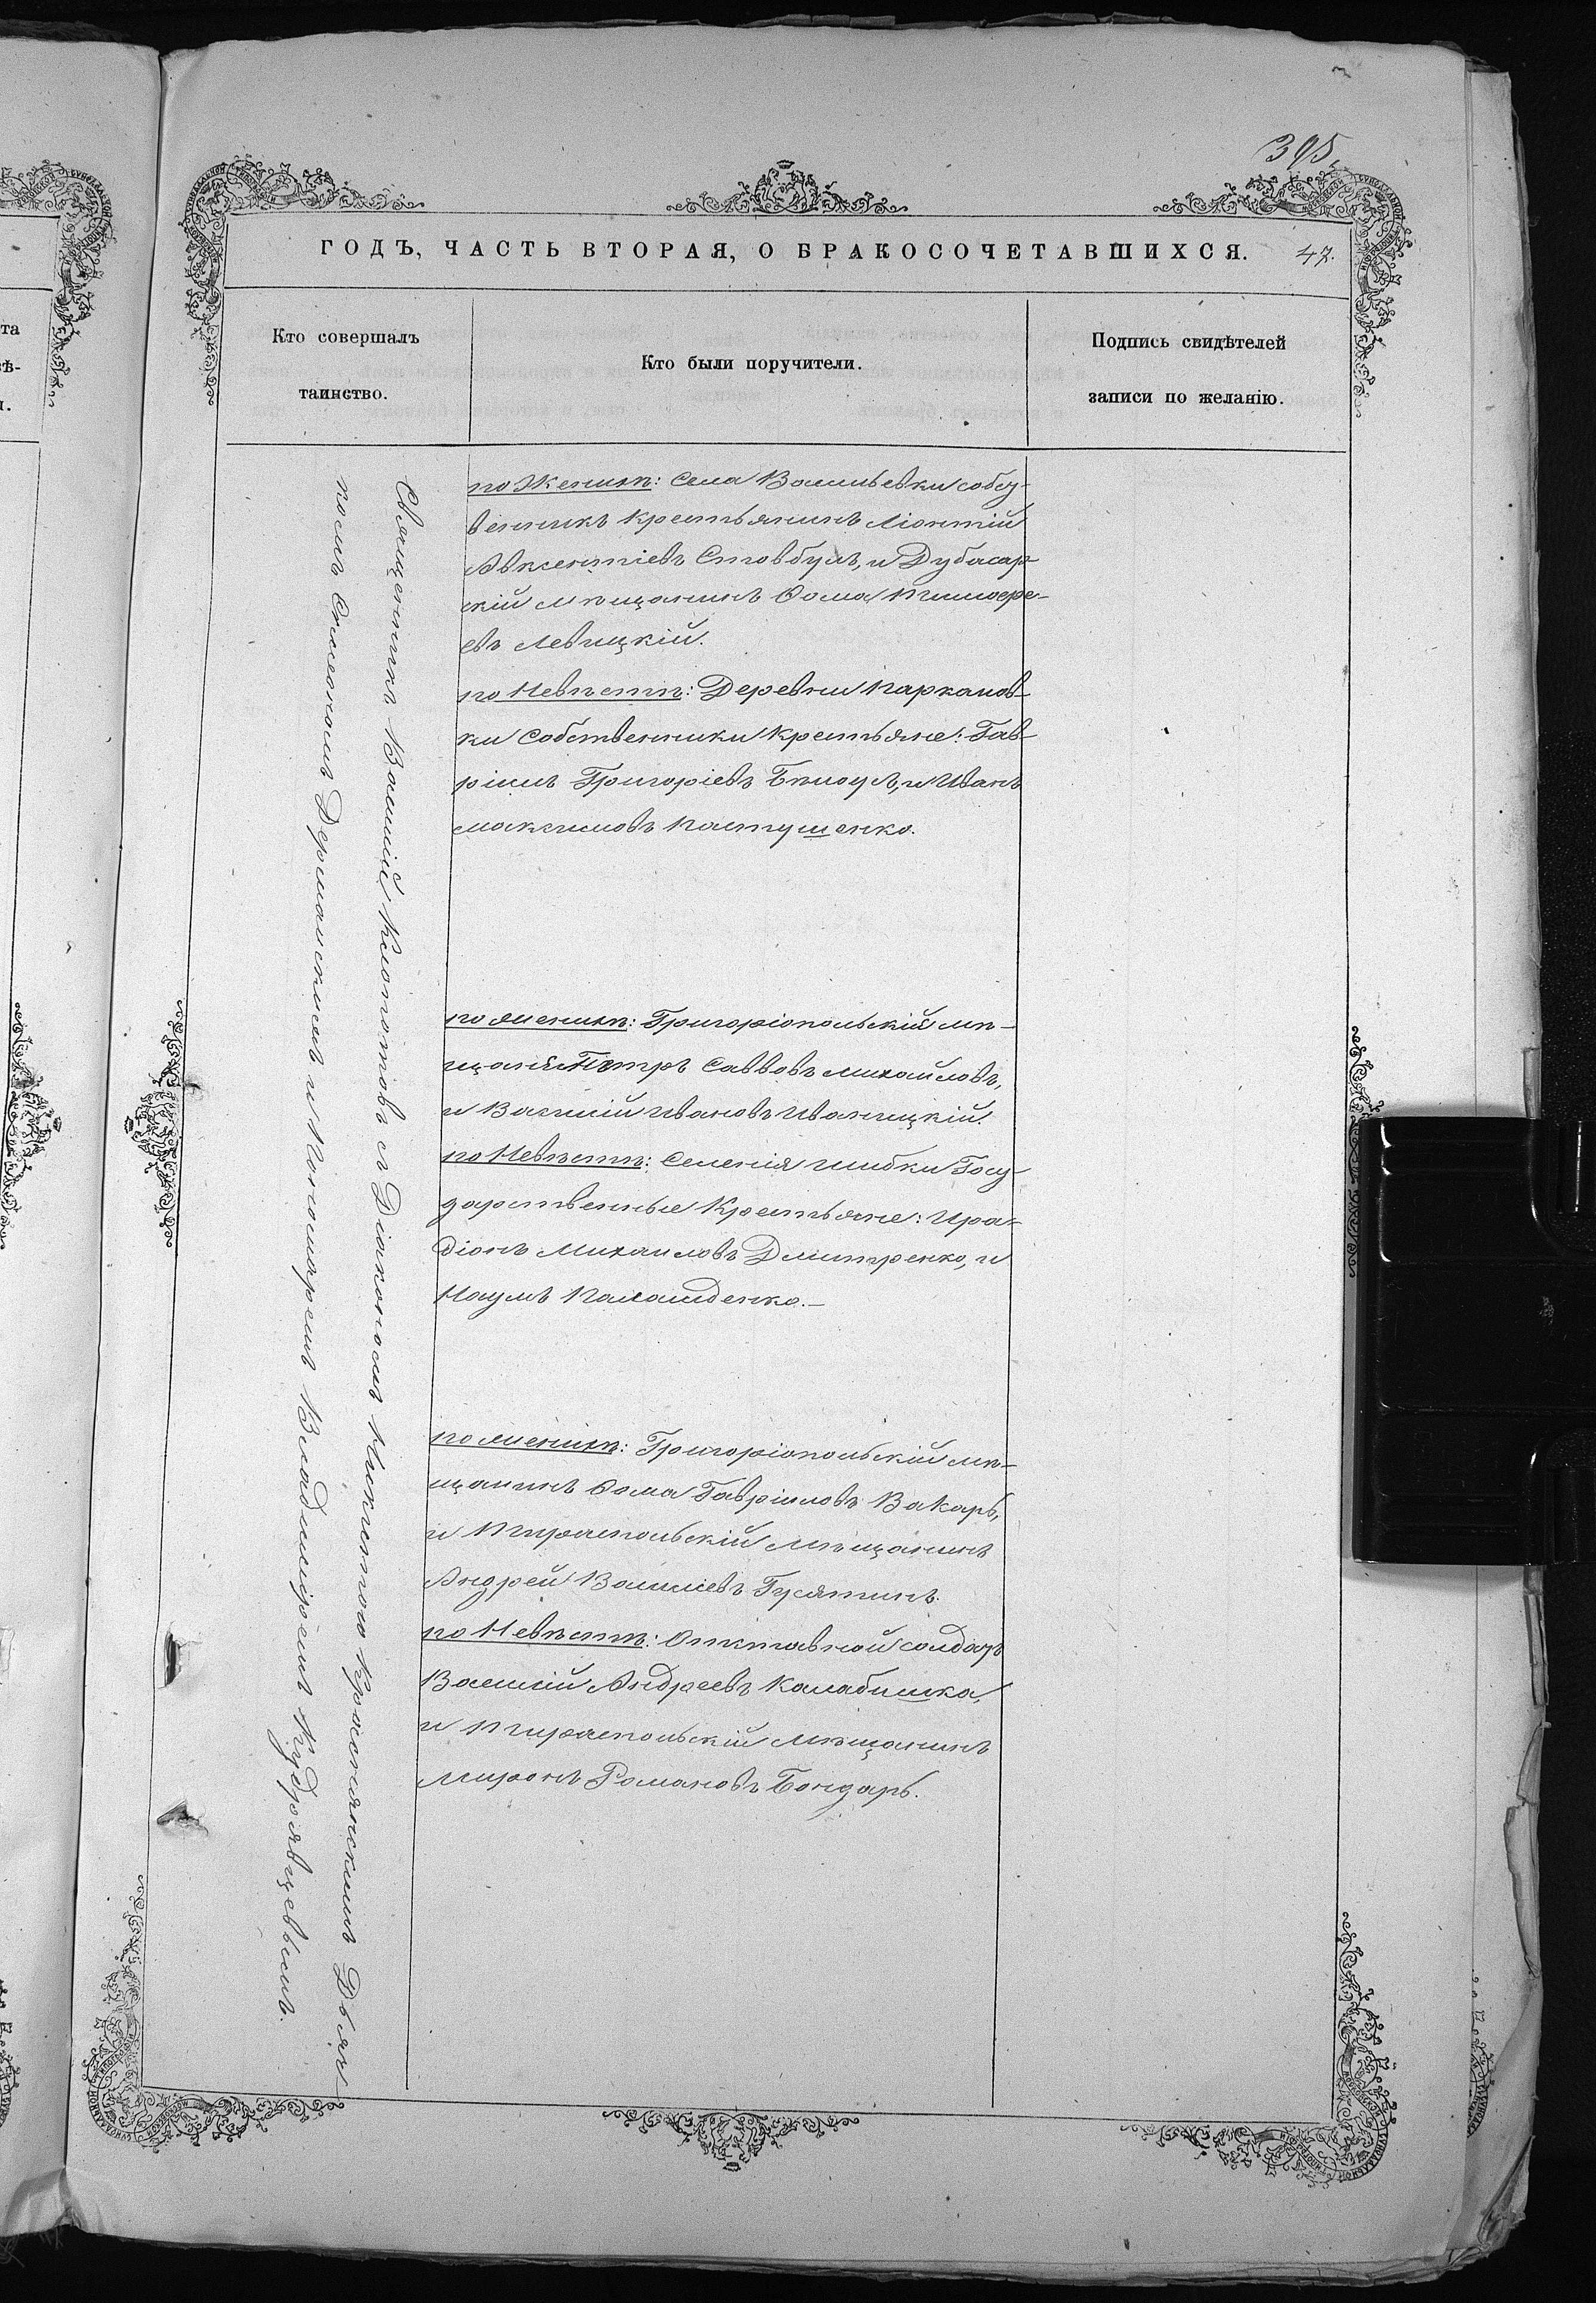 395.
ГОДЪ, ЧАСТЬ ВТОРАЯ, О БРАКОСОЧЕТАВШИХСЯ. 47.
Кто совершалъ
таинство.
Кто были поручители.
Подпись свидѣтелей
записи по желанію.
Священникъ Василій с Діакономъ Никитою Краснянскимъ Дьяч-
комъ Симеономъ Дерманскимъ и Пономаремъ Владиміромъ Кудрявцевымъ.
по Женихѣ: Села Васильевки собс-
венникъ Крестьянинъ Ліонтій
Авксентіевъ Стовбулъ, и Дубасар-
скій мѣщанинъ Ѳома Тимоѳе-
евъ Левицкій.
по Невѣстѣ: Деревни Парканов-
ки Собственники Крестьяне: Гав-
ріилъ Григоріевъ и Иванъ
Максимовъ Пастушенко.
по женихѣ: Григоріопольскій мѣ-
щане Петръ Саввовъ Михайловъ,
и Василій Ивановъ Иваницкій.
по Невѣстѣ: Селенія Шибки Госу-
дарственные Крестьяне: Ира-
діонъ Михаиловъ Дмитренко, и
Наумъ
по женихѣ: Григоріопольскій мѣ-
щанинъ Ѳома Гавріиловъ Вакарь,
и Тираспольскій мѣщанинъ
Андрей Василіевъ Гусятинъ.
по Невѣстѣ: Отставной солдатъ
Василій Андреевъ Калабишка,
и Тираспольскій мѣщанинъ
Миронъ Романовъ Бондарь.